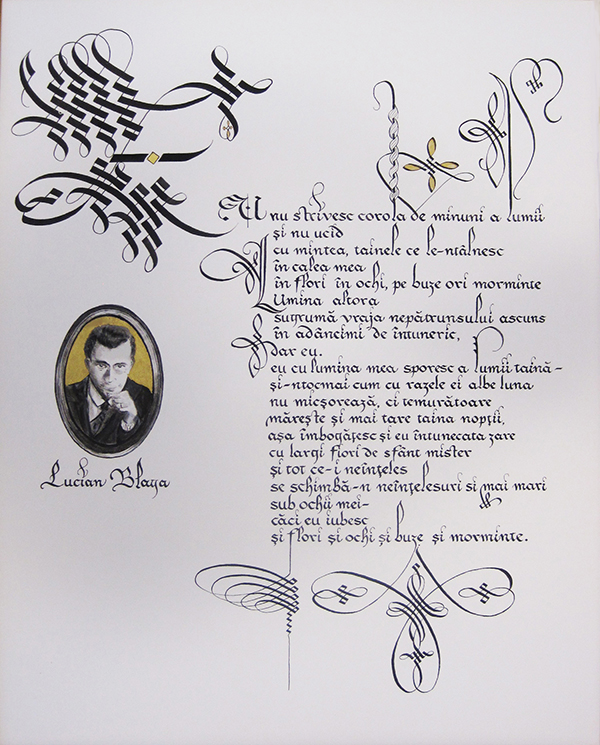 Eu nu strivesc corola de minuni a lumii
și nu ucid
cu mintea, tainele ce le-ntâlnesc
în calea mea
în flori în ochi, pe buze ori morminte
Lumina altora
sugrumă vraja nepătrunsului ascuns
în adâncimi de întuneric,
dar eu,
eu cu lumina mea sporesc a lumii taină-
și-ntocmai cum cu razele ei albe luna
nu micșorează, ci temurătoare
mărește și mai tare taina nopții,
așa îmbogățesc și eu întunecata zare
cu largi fiori de sfânt mister
și tot ce-i neînțeles
se schimbă-n neînțelesuri și mai mari
sub ochii mei-
căci eu iubesc
și flori și ochi și buze și morminte.
Lucian Blaga